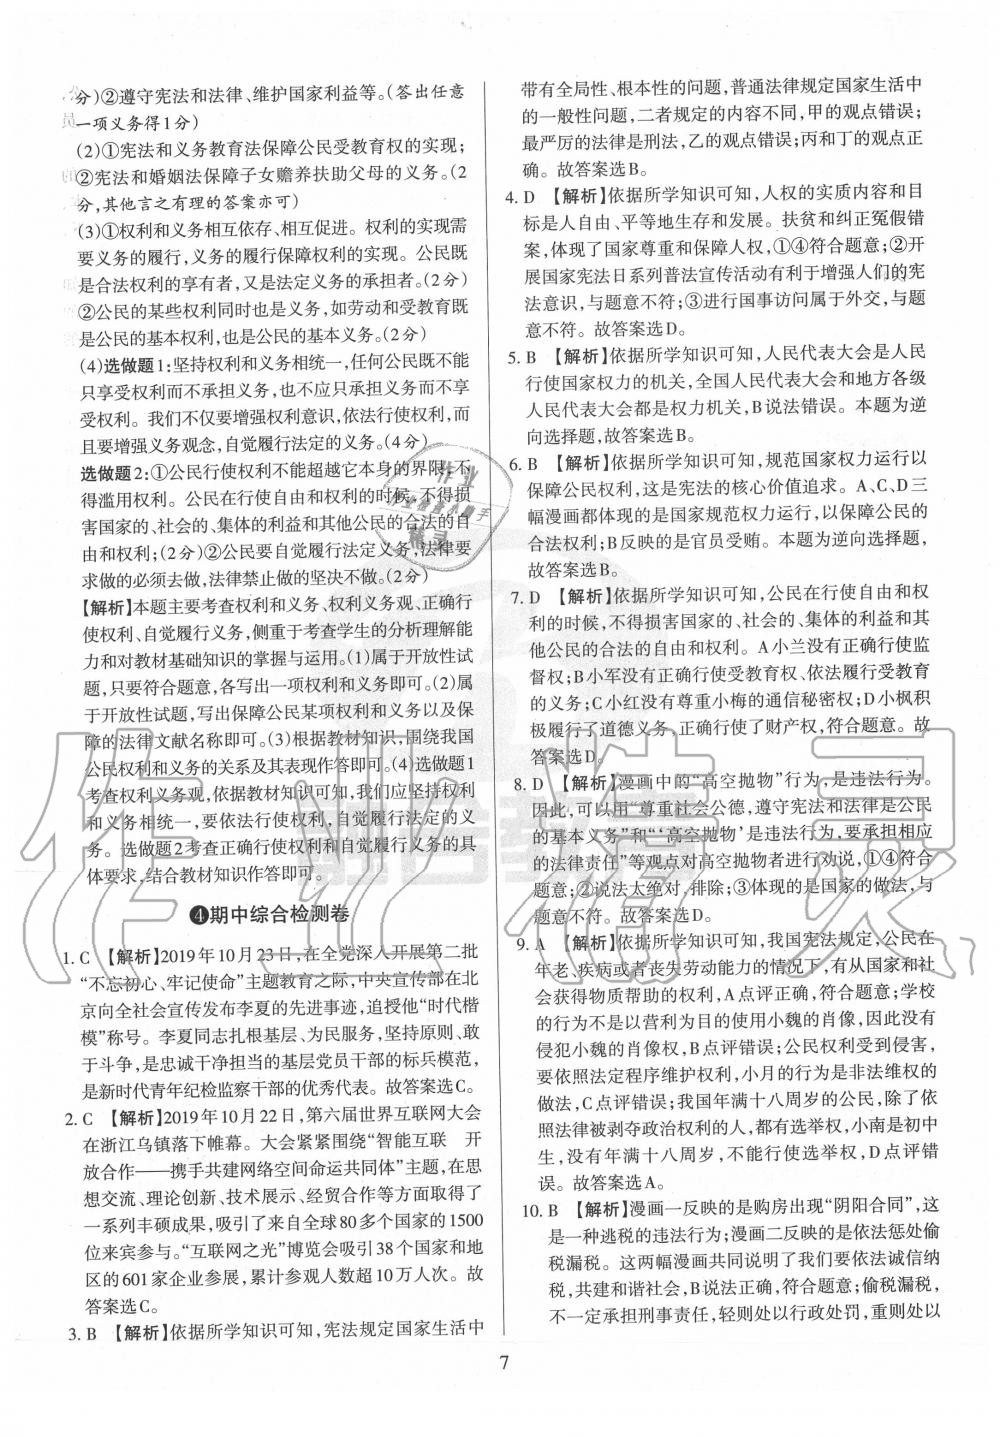 分)②遵守宪法和法律、维护国家利益等。(答出任意
一项义务得1分)
(2)①宪法和义务教育法保障公民受教育权的实现；
②宪法和婚姻法保障子女赡养扶助父母的义务。(2
分,其他言之有理的答案亦可)
(3)①权利和义务相互依存、相互促进。权利的实现需
要义务的履行,义务的履行保障权利的实现。公民既
是合法权利的享有者,又是法定义务的承担者。(2分)
②公民的某些权利同时也是义务,如劳动和受教育既
是公民的基本权利,也是公民的基本义务。(2分)
(4)选做题1:坚持权利和义务相统一,任何公民既不能
只享受权利而不承担义务,也不应只承担义务而不享
受权利。我们不仅要增强权利意识,依法行使权利,而
且要增强义务观念,自觉履行法定的义务。(4分)
选做题2:①公民行使权利不能超越它本身的界限,不
得滥用权利。公民在行使自由和权利的时候,不得损
害国家的、社会的、集体的利益和其他公民的合法的自
由和权利;(2分)②公民要自觉履行法定义务,法律要
求做的必须去做,法律禁止做的坚决不做。(2分)
【解析】本题主要考查权利和义务、权利义务观、正确行
使权利、自觉履行义务,侧重于考查学生的分析理解能
力和对教材基础知识的掌握与运用。(1)属于开放性试
题,只要符合题意,各写出一项权利和义务即可。(2)属
于开放性试题,写出保障公民某项权利和义务以及保
障的法律文献名称即可。(3)根据教材知识,围绕我国
公民权利和义务的关系及其表现作答即可。(4)选做题1
考查权利义务观,依据教材知识可知,我们应坚持权利
和义务相统一,要依法行使权利,自觉履行法定的义
务。选做题2考查正确行使权利和自觉履行义务的具
体要求,结合教材知识作答即可。
❹期中综合检测卷
1. C 【解析】2019年10月23日,在全党深入开展第二批
“不忘初心、牢记使命”主题教育之际,中央宣传部在北
京向全社会宣传发布李夏的先进事迹,追授他“时代楷
模”称号。李夏同志扎根基层、为民服务,坚持原则、敢
于斗争,是忠诚干净担当的基层党员干部的标兵模范,
是新时代青年纪检监察干部的优秀代表。故答案选C。
2. C 【解析】2019年10月22日,第六届世界互联网大会
在浙江乌镇落下帷幕。大会紧紧围绕“智能互联 开
放合作——携手共建网络空间命运共同体”主题,在思
想交流、理论创新、技术展示、经贸合作等方面取得了
一系列丰硕成果,吸引了来自全球80多个国家的1500
位来宾参与。“互联网之光”博览会吸引38个国家和地
区的601家企业参展,累计参观人数超10万人次。故
答案选C。
3. B 【解析】依据所学知识可知,宪法规定国家生活中
带有全局性、根本性的问题,普通法律规定国家生活中
的一般性问题,二者规定的内容不同,甲的观点错误;
最严厉的法律是刑法,乙的观点错误;丙和丁的观点正
确。故答案选B。
4. D 【解析】依据所学知识可知,人权的实质内容和目
标是人自由、平等地生存和发展。扶贫和纠正冤假错
案,体现了国家尊重和保障人权,①④符合题意;②开
展国家宪法日系列普法宣传活动有利于增强人们的宪
法意识,与题意不符;③进行国事访问属于外交,与题
意不符。故答案选D。
5. B 【解析】依据所学知识可知,人民代表大会是人民
行使国家权力的机关,全国人民代表大会和地方各级
人民代表大会都是权力机关,B说法错误。本题为逆
向选择题,故答案选B。
6. B 【解析】依据所学知识可知,规范国家权力运行以
保障公民权利,这是宪法的核心价值追求。A、C、D三
幅漫画都体现的是国家规范权力运行,以保障公民的
合法权利;B反映的是官员受贿。本题为逆向选择题,
故答案选B。
7. D 【解析】依据所学知识可知,公民在行使自由和权
利的时候,不得损害国家的、社会的、集体的利益和其
他公民的合法的自由和权利。A小兰没有正确行使监
督权;B小军没有正确行使受教育权、依法履行受教育
的义务;C小红没有尊重小梅的通信秘密权;D小枫积
极履行了道德义务,正确行使了财产权,符合题意。故
答案选D。
8. D 【解析】漫画中的“高空抛物”行为,是违法行为。
因此,可以用“尊重社会公德,遵守宪法和法律是公民
的基本义务”和“‘高空抛物’是违法行为,要承担相应
的法律责任”等观点对高空抛物者进行劝说,①④符合
题意;②说法太绝对,排除;③体现的是国家的做法,与
题意不符。故答案选D。
9. A 【解析】依据所学知识可知,我国宪法规定,公民在
年老、疾病或者丧失劳动能力的情况下,有从国家和社
会获得物质帮助的权利,A点评正确,符合题意;学校
的行为不是以营利为目的使用小魏的肖像,因此没有
侵犯小魏的肖像权,B点评错误;公民权利受到侵害,
要依照法定程序维护权利,小月的行为是非法行为的
做法,C点评错误;我国年满十八周岁的公民,除依照
法律被剥夺政治权利的人,都有选举权,小南是初中
生,没有年满十八周岁,不能行使选举权,D点评错
误。故答案选A。
10. B 【解析】漫画一反映的是购房出现“阴阳合同”,这
是一种逃税的违法行为;漫画二反映的是依法惩处偷
税漏税。这两幅漫画共同说明了我们要依法诚信纳
税,共建和谐社会,B说法正确,符合题意;偷税漏税,
不一定承担刑事责任,轻则处以行政处罚,重则处以
7
作业精灵